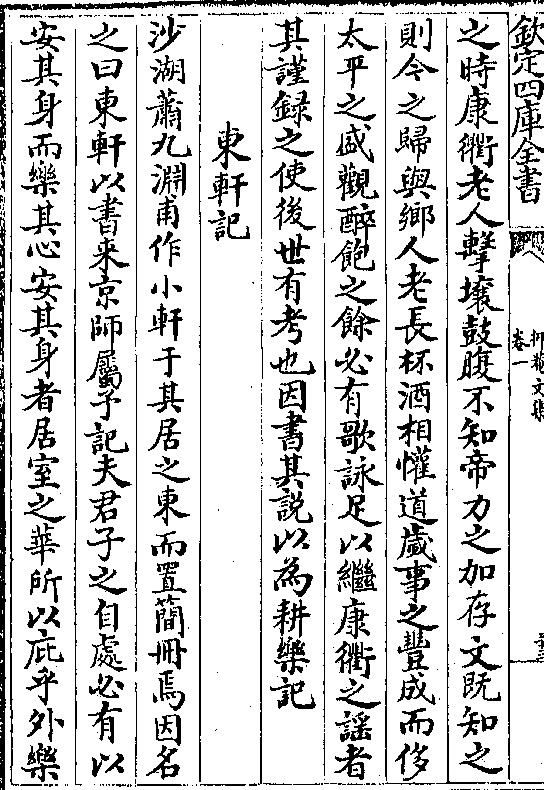 欽定四庫全書
卷一
之時康衢老人擊壤鼓腹不知帝力之加存文既知之
則今之歸與鄉人老長杯酒相懽道歲事之豐成而侈
太平之盛觀醉飽之餘必有歌詠足以繼康衢之謡者
其謹録之使後世有考也因書其説以為耕樂記
東軒記
沙湖蕭九淵甫作小軒于其居之東而置簡冊焉因名
之曰東軒以書来京師屬予記夫君子之自處必有以
安其身而樂其心安其身者居室之華所以庇乎外樂